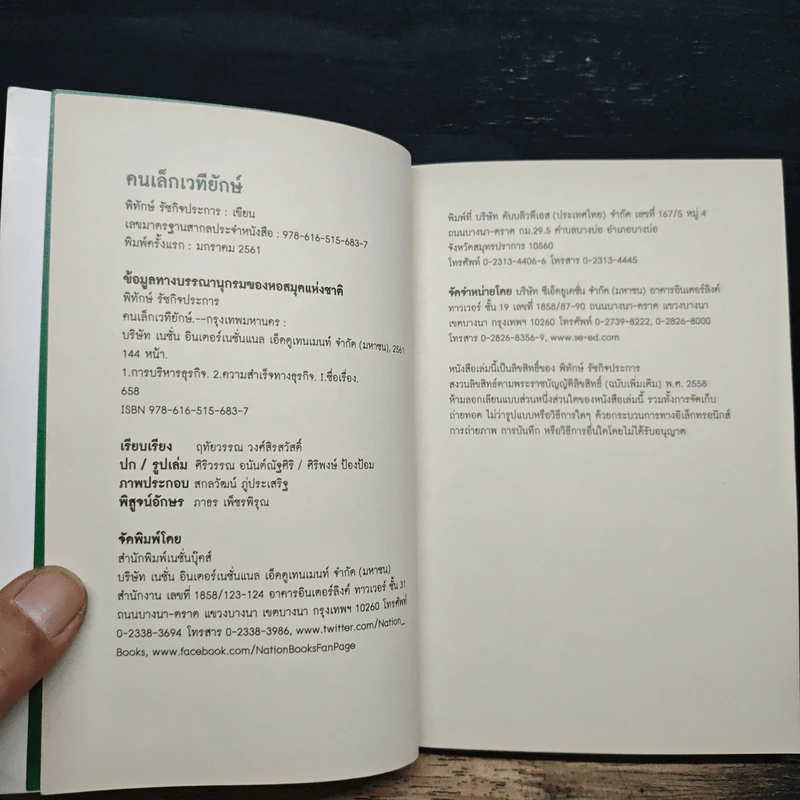 คนเล็กเวทียักษ์
พิทักษ์ รัชกิจประการ : เขียน
เลขมาตรฐานสากลประจำหนังสือ : 978-616-515-683-7
พิมพ์ครั้งแรก : มกราคม 2561
ข้อมูลทางบรรณานุกรมของหอสมุดแห่งชาติ
พิทักษ์ รัชกิจประการ
คนเล็กเวทียักษ์.--กรุงเทพมหานคร :
บริษัท เนชั่น อินเตอร์เนชั่นแนล เอ็ดดูเทนเมนท์ จำกัด (มหาชน), 2561
144 หน้า.
1.การบริหารธุรกิจ. 2.ความสำเร็จทางธุรกิจ. I.ชื่อเรื่อง.
658
ISBN 978-616-515-683-7
เรียบเรียง ฤทัยวรรณ วงศ์สิรสวัสดิ์
ปก / รูปเล่ม ศิริวรรณ อนันต์ณัฐศิริ / ศิริพงษ์ ป้องป้อม
ภาพประกอบ สกลวัฒน์ ภู่ประเสริฐ
พิสูจน์อักษร ภาธร เพ็ชรพิรุณ
จัดพิมพ์โดย
สำนักพิมพ์เนชั่นบุ๊คส์
บริษัท เนชั่น อินเตอร์เนชั่นแนล เอ็ดดูเทนเมนท์ จำกัด (มหาชน)
สำนักงาน เลขที่ 1858/123-124 อาคารอินเตอร์ลิงค์ ทาวเวอร์ ชั้น 31
ถนนบางนา-ตราด แขวงบางนา เขตบางนา กรุงเทพฯ 10260 โทรศัพท์
0-2338-3694 โทรสาร 0-2338-3986, www.twitter.com/Nation_
Books, www.facebook.com/NationBooksFanPage
พิมพ์ที่ บริษัท ดับบลิวพีเอส (ประเทศไทย) จำกัด เลขที่ 167/5 หมู่ 4
ถนนบางนา-ตราด กม.29.5 ตำบลบางบ่อ อำเภอบางบ่อ
จังหวัดสมุทรปราการ 10560
โทรศัพท์ 0-2313-4406-6 โทรสาร 0-2313-4445
จัดจำหน่ายโดย บริษัท ซีเอ็ดยูเคชั่น จำกัด (มหาชน) อาคารอินเตอร์ลิงค์
ทาวเวอร์ ชั้น 19 เลขที่ 1858/87-90 ถนนบางนา-ตราด แขวงบางนา
เขตบางนา กรุงเทพฯ 10260 โทรศัพท์ 0-2739-8222, 0-2826-8000
โทรสาร 0-2826-8356-9, www.se-ed.com
หนังสือเล่มนี้เป็นลิขสิทธิ์ของ พิทักษ์ รัชกิจประการ
สงวนลิขสิทธิ์ตามพระราชบัญญัติลิขสิทธิ์ (ฉบับเพิ่มเติม) พ.ศ. 2558
ห้ามลอกเลียนแบบส่วนหนึ่งส่วนใดของหนังสือเล่มนี้ รวมทั้งการจัดเก็บ
ถ่ายทอด ไม่ว่ารูปแบบหรือวิธีการใดๆ ด้วยกระบวนการทางอิเล็กทรอนิกส์
การถ่ายภาพ การบันทึก หรือวิธีการอื่นใดโดยไม่ได้รับอนุญาต